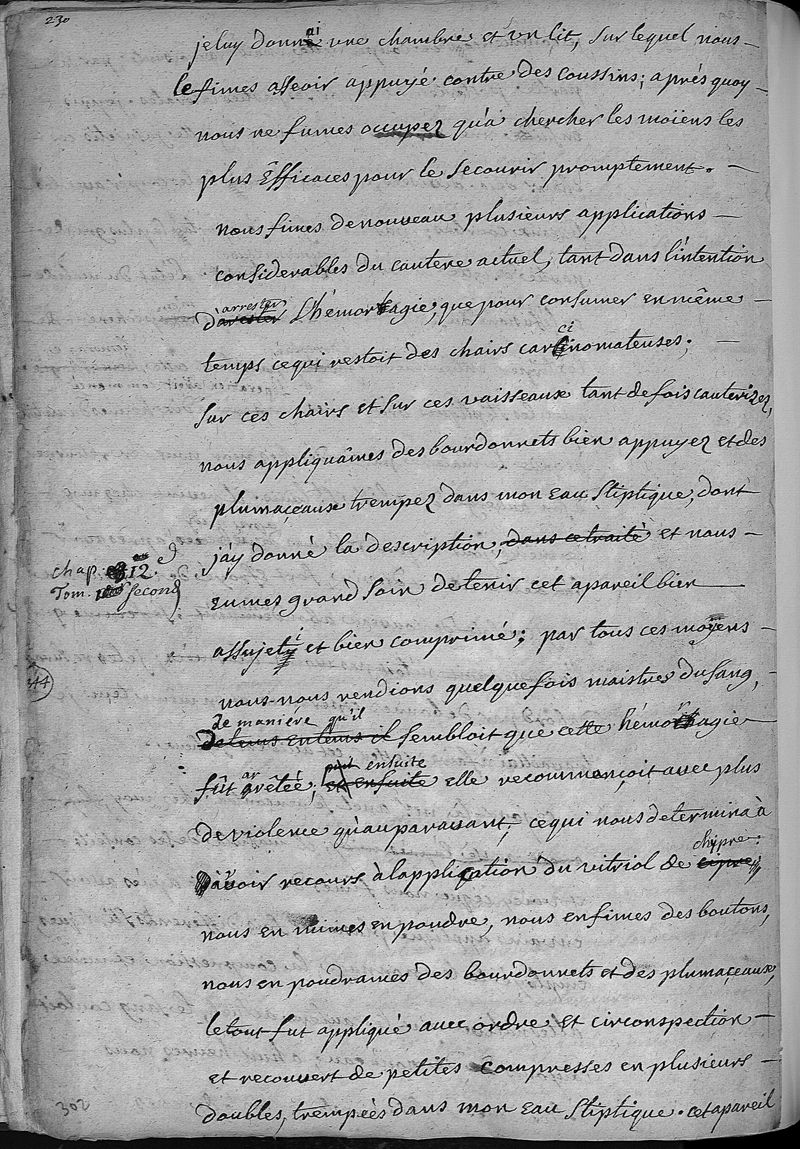 230
je luy donnai une chambre et un lit, sur lequel nous
le fimes asseoir appuyé contre des coussins; aprés quoy
nous ne fumes occupez qu'à chercher les moïens les
plus Êfficaces pour le secourir promptement.
nous fimes denouveau plusieurs applications
considerables du cautere actuel, tant dans l'intention
d'arester arrester L'hémorragie, que pour consumer en même
temps cequi restoit des chairs carcinomateuses;
sur ces chairs et sur ces vaisseaux tant de fois cauterizez,
nous appliquâmes des bourdonnets bien appuyez et des
plumaçeaux trempez dans mon Eau stiptique, dont
j'ay donné la description, dans cetraité et nous
chap. 12.e
Tom. second
eumes grand soin de tenir cet apareil bien
assujeti et bien comprimé; par tous ces moyens
344
nous-nous rendions quelquefois maistres du sang,
de maniére qu'il
detems entems il sembloit que cette hémorragie
ensuite
fût arrêtée; et ensuite elle recommençoit avec plus
de violence qu'auparavant; cequi nous determina à
chipre:
avoir recours à l'application du vitriol de cipre
nous en mimes en poudre, nous en fimes des boutons,
nous en poudrames des bourdonnets et des plumaçeaux,
le tout fut appliqué avec ordre et circonspection
et recouvert de petites compresses en plusieurs
302
doubles, trempeés dans mon eau stiptique. cet apareil